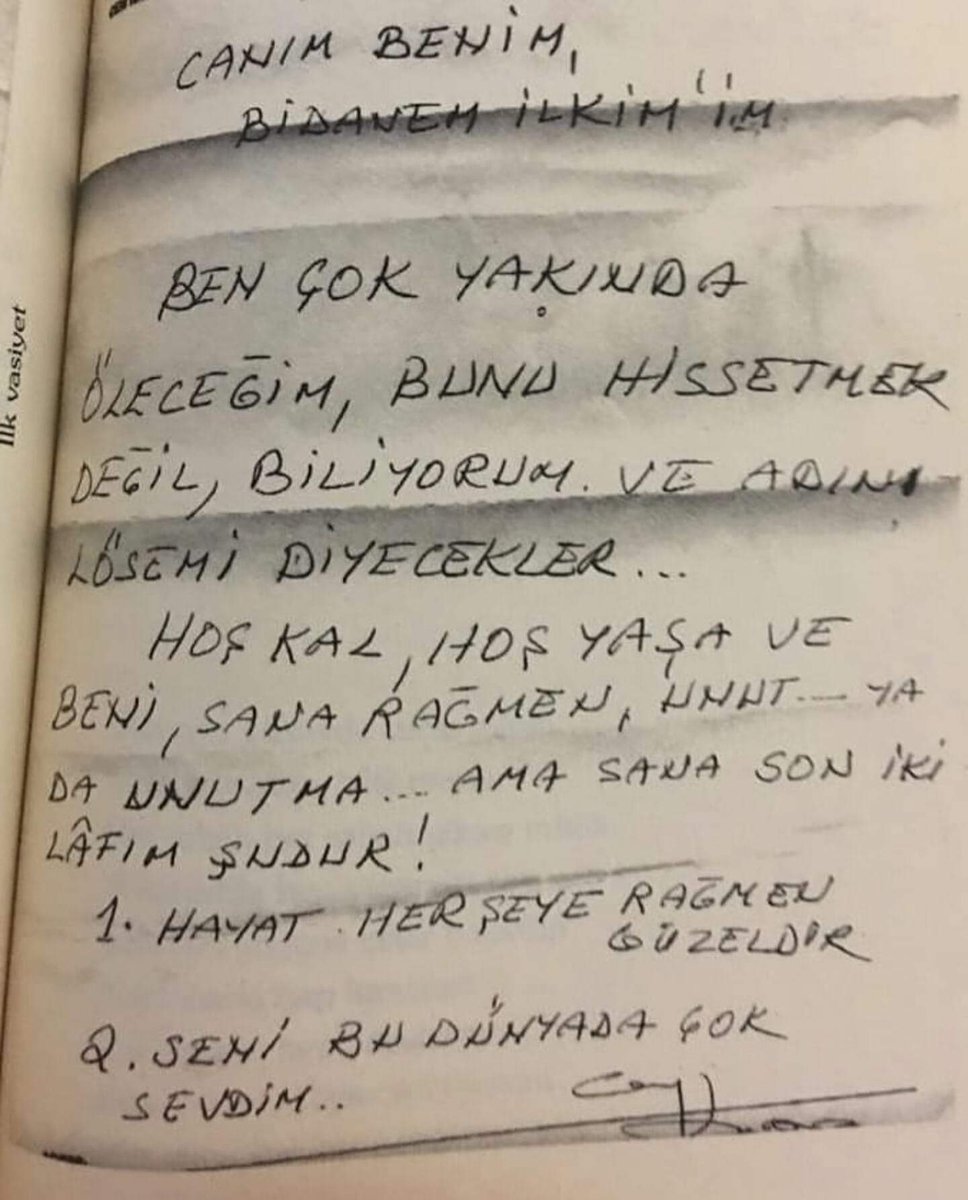 CANIM BENİM,
BİDANEM İLKİM'İM
BEN ÇOK YAKINDA
ÖLECEĞİM, BUNU HİSSETMEK
DEĞİL, BİLİYORUM. VE ADINI
LÖSEMİ DİYECEKLER...
HOŞ KAL, HOŞ YAŞA VE
BENİ, SANA RAĞMEN, UNUT... YA
DA UNUTMA... AMA SANA SON İKİ
LÂFIM ŞUDUR!
1. HAYAT HERŞEYE RAĞMEN
GÜZELDİR
2. SENİ BU DÜNYADA ÇOK
SEVDİM..
İlk vasiyet